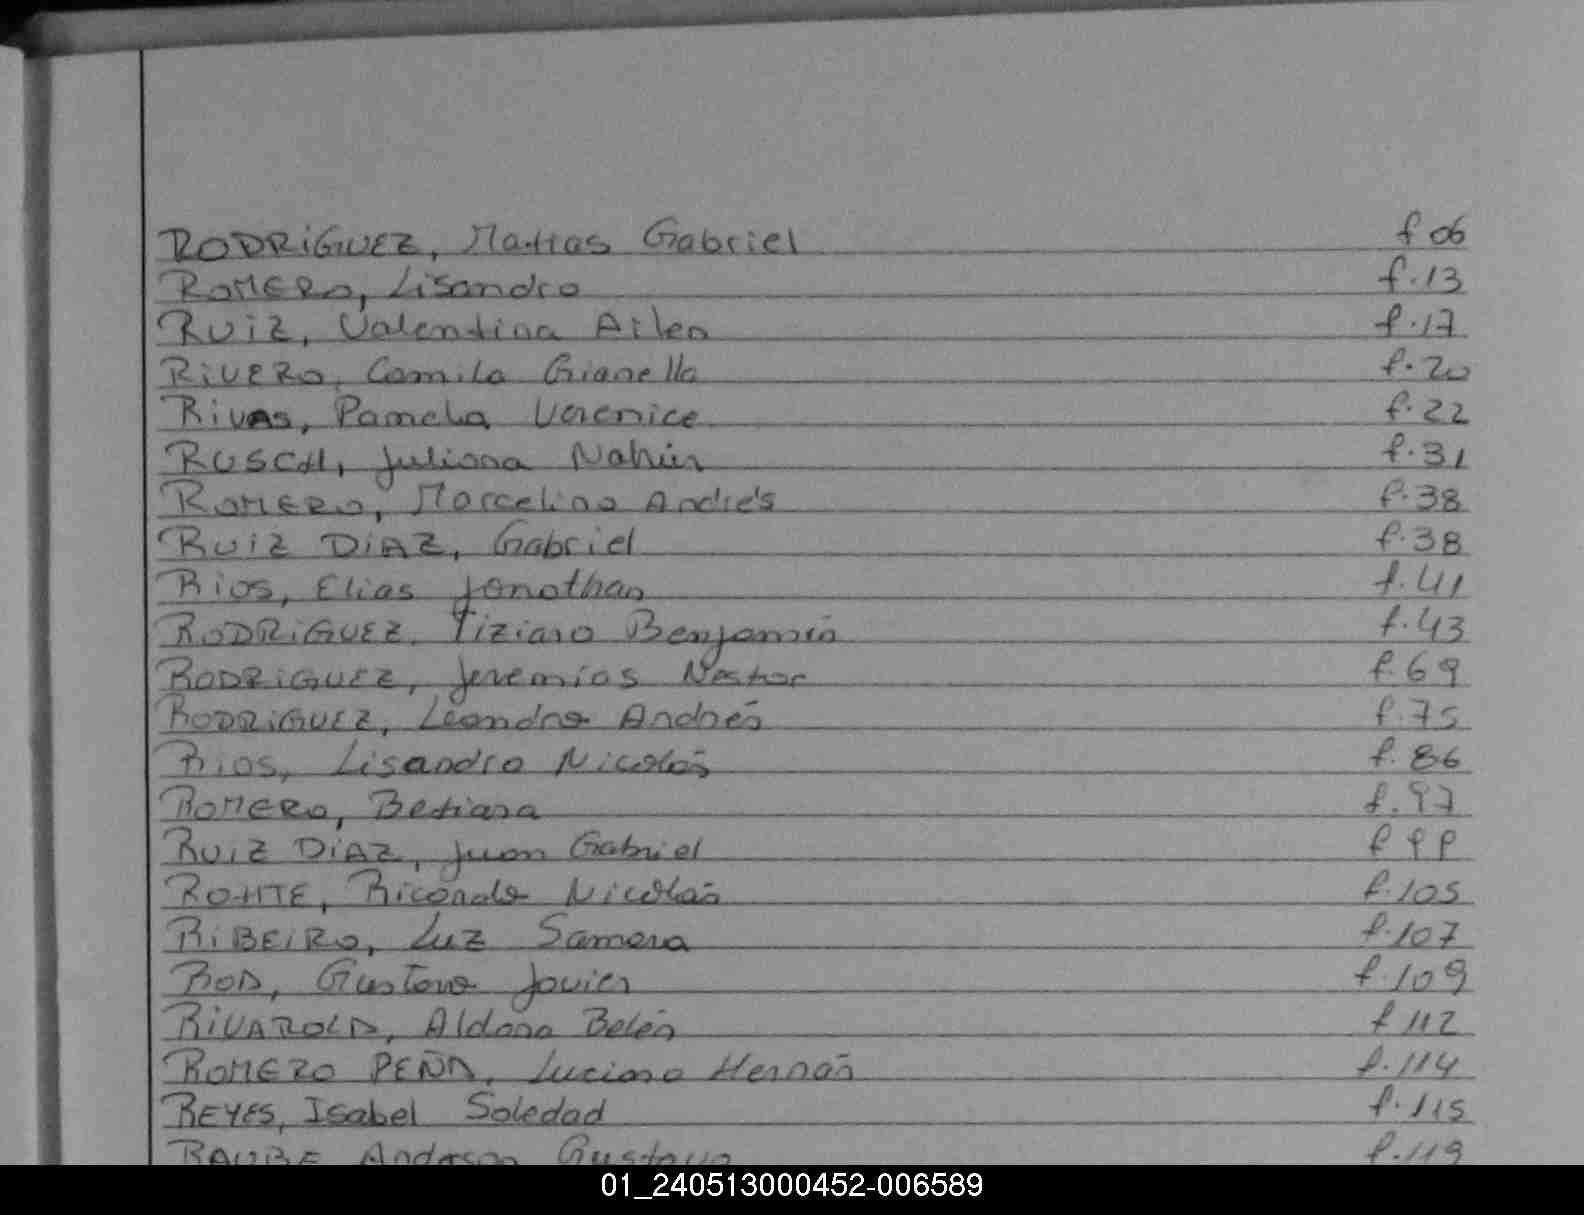 RODRIGUEZ, Matias Gabriel f 06
ROMERO, Lisandro f.13
RUIZ, Valentina Ailen f.17
RIVERO, Camila Gianella f.20
RIVAS, Pamela Verenice f.22
RUSCH, Juliana Nahir f.31
ROMERO, Marcelino Andrés f.38
RUIZ DIAZ, Gabriel f.38
RIOS, Elias Jonathan f.41
RODRIGUEZ, Tiziano Benjamín f.43
RODRIGUEZ, Jeremías Nestor f.69
RODRIGUEZ, Leandro Andrés f.75
RIOS, Lisandro Nicolás f.86
ROMERO, Betiana f.97
RUIZ DIAZ, Juan Gabriel f
Ricardo Nicolás f.105
RIBEIRO, Luz Samara f.107
ROD, Gustavo Javier f.109
RIVAROLA, Aldana Belén f 112
ROMERO PEÑA, Luciano Hernán f.114
REYES, Isabel Soledad f.115
Anderson Gustavo f.119
01_240513000452-006589